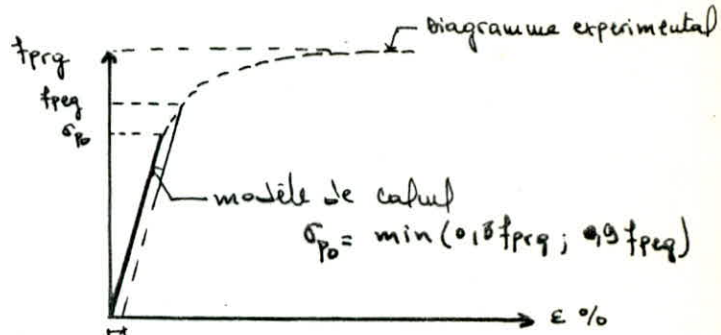 Diagramme experimental
fprg
fpeg
σpo
modèle de calcul
σpo = min(0,8 fprg ; 0,9 fpeg)
ε %